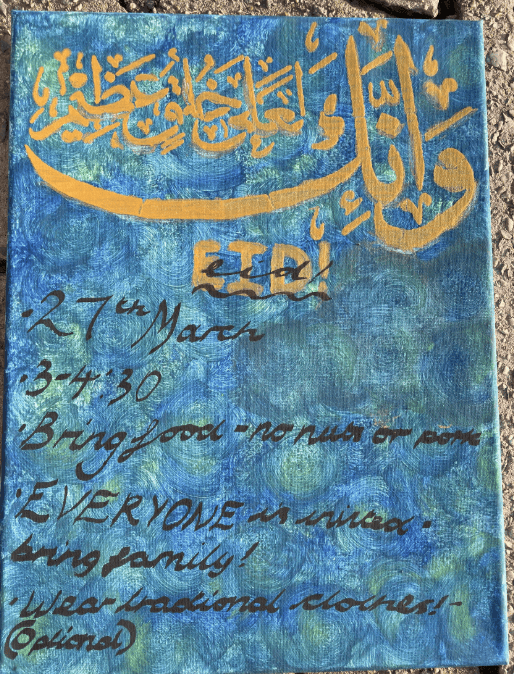 وَإِنَّكَ لَعَلَىٰ خُلُقٍ عَظِيمٍ
EID!
eid!
·27th March
·3-4:30
·Bring food - no nuts or pork
·EVERYONE is invited -
bring family!
·Wear tradional clothes! -
(Optional)